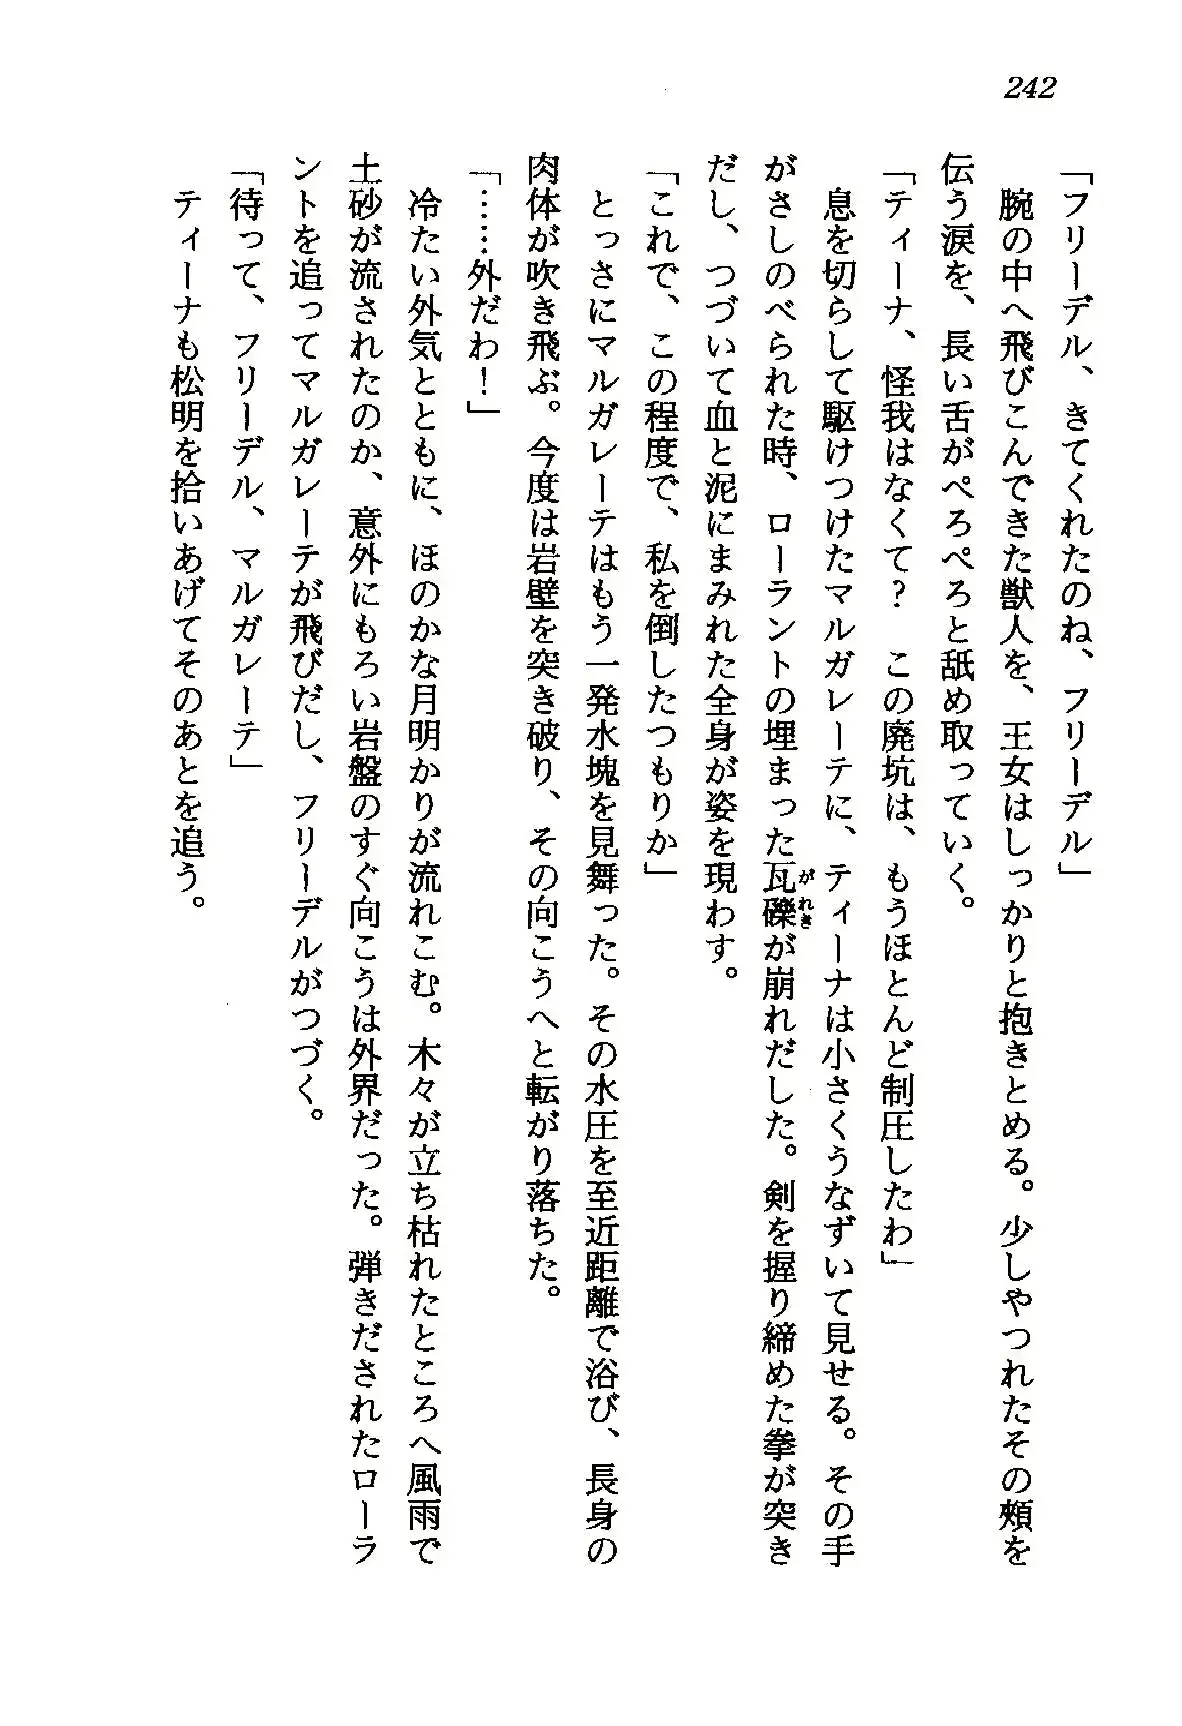 242
「フリーデル、きてくれたのね、フリーデル」
　腕の中へ飛びこんできた獣人を、王女はしっかりと抱きとめる。少しやつれたその頬を
伝う涙を、長い舌がぺろぺろと舐め取っていく。
「ティーナ、怪我はなくて？　この廃坑は、もうほとんど制圧したわ」
　息を切らして駆けつけたマルガレーテに、ティーナは小さくうなずいて見せる。その手
がさしのべられた時、ローラントの埋まった瓦礫が崩れだした。剣を握り締めた拳が突き
がれき
だし、つづいて血と泥にまみれた全身が姿を現わす。
「これで、この程度で、私を倒したつもりか」
　とっさにマルガレーテはもう一発水塊を見舞った。その水圧を至近距離で浴び、長身の
肉体が吹き飛ぶ。今度は岩壁を突き破り、その向こうへと転がり落ちた。
「……外だわ！」
　冷たい外気とともに、ほのかな月明かりが流れこむ。木々が立ち枯れたところへ風雨で
土砂が流されたのか、意外にもろい岩盤のすぐ向こうは外界だった。弾きだされたローラ
ントを追ってマルガレーテが飛びだし、フリーデルがつづく。
「待って、フリーデル、マルガレーテ」
　ティーナも松明を拾いあげてそのあとを追う。